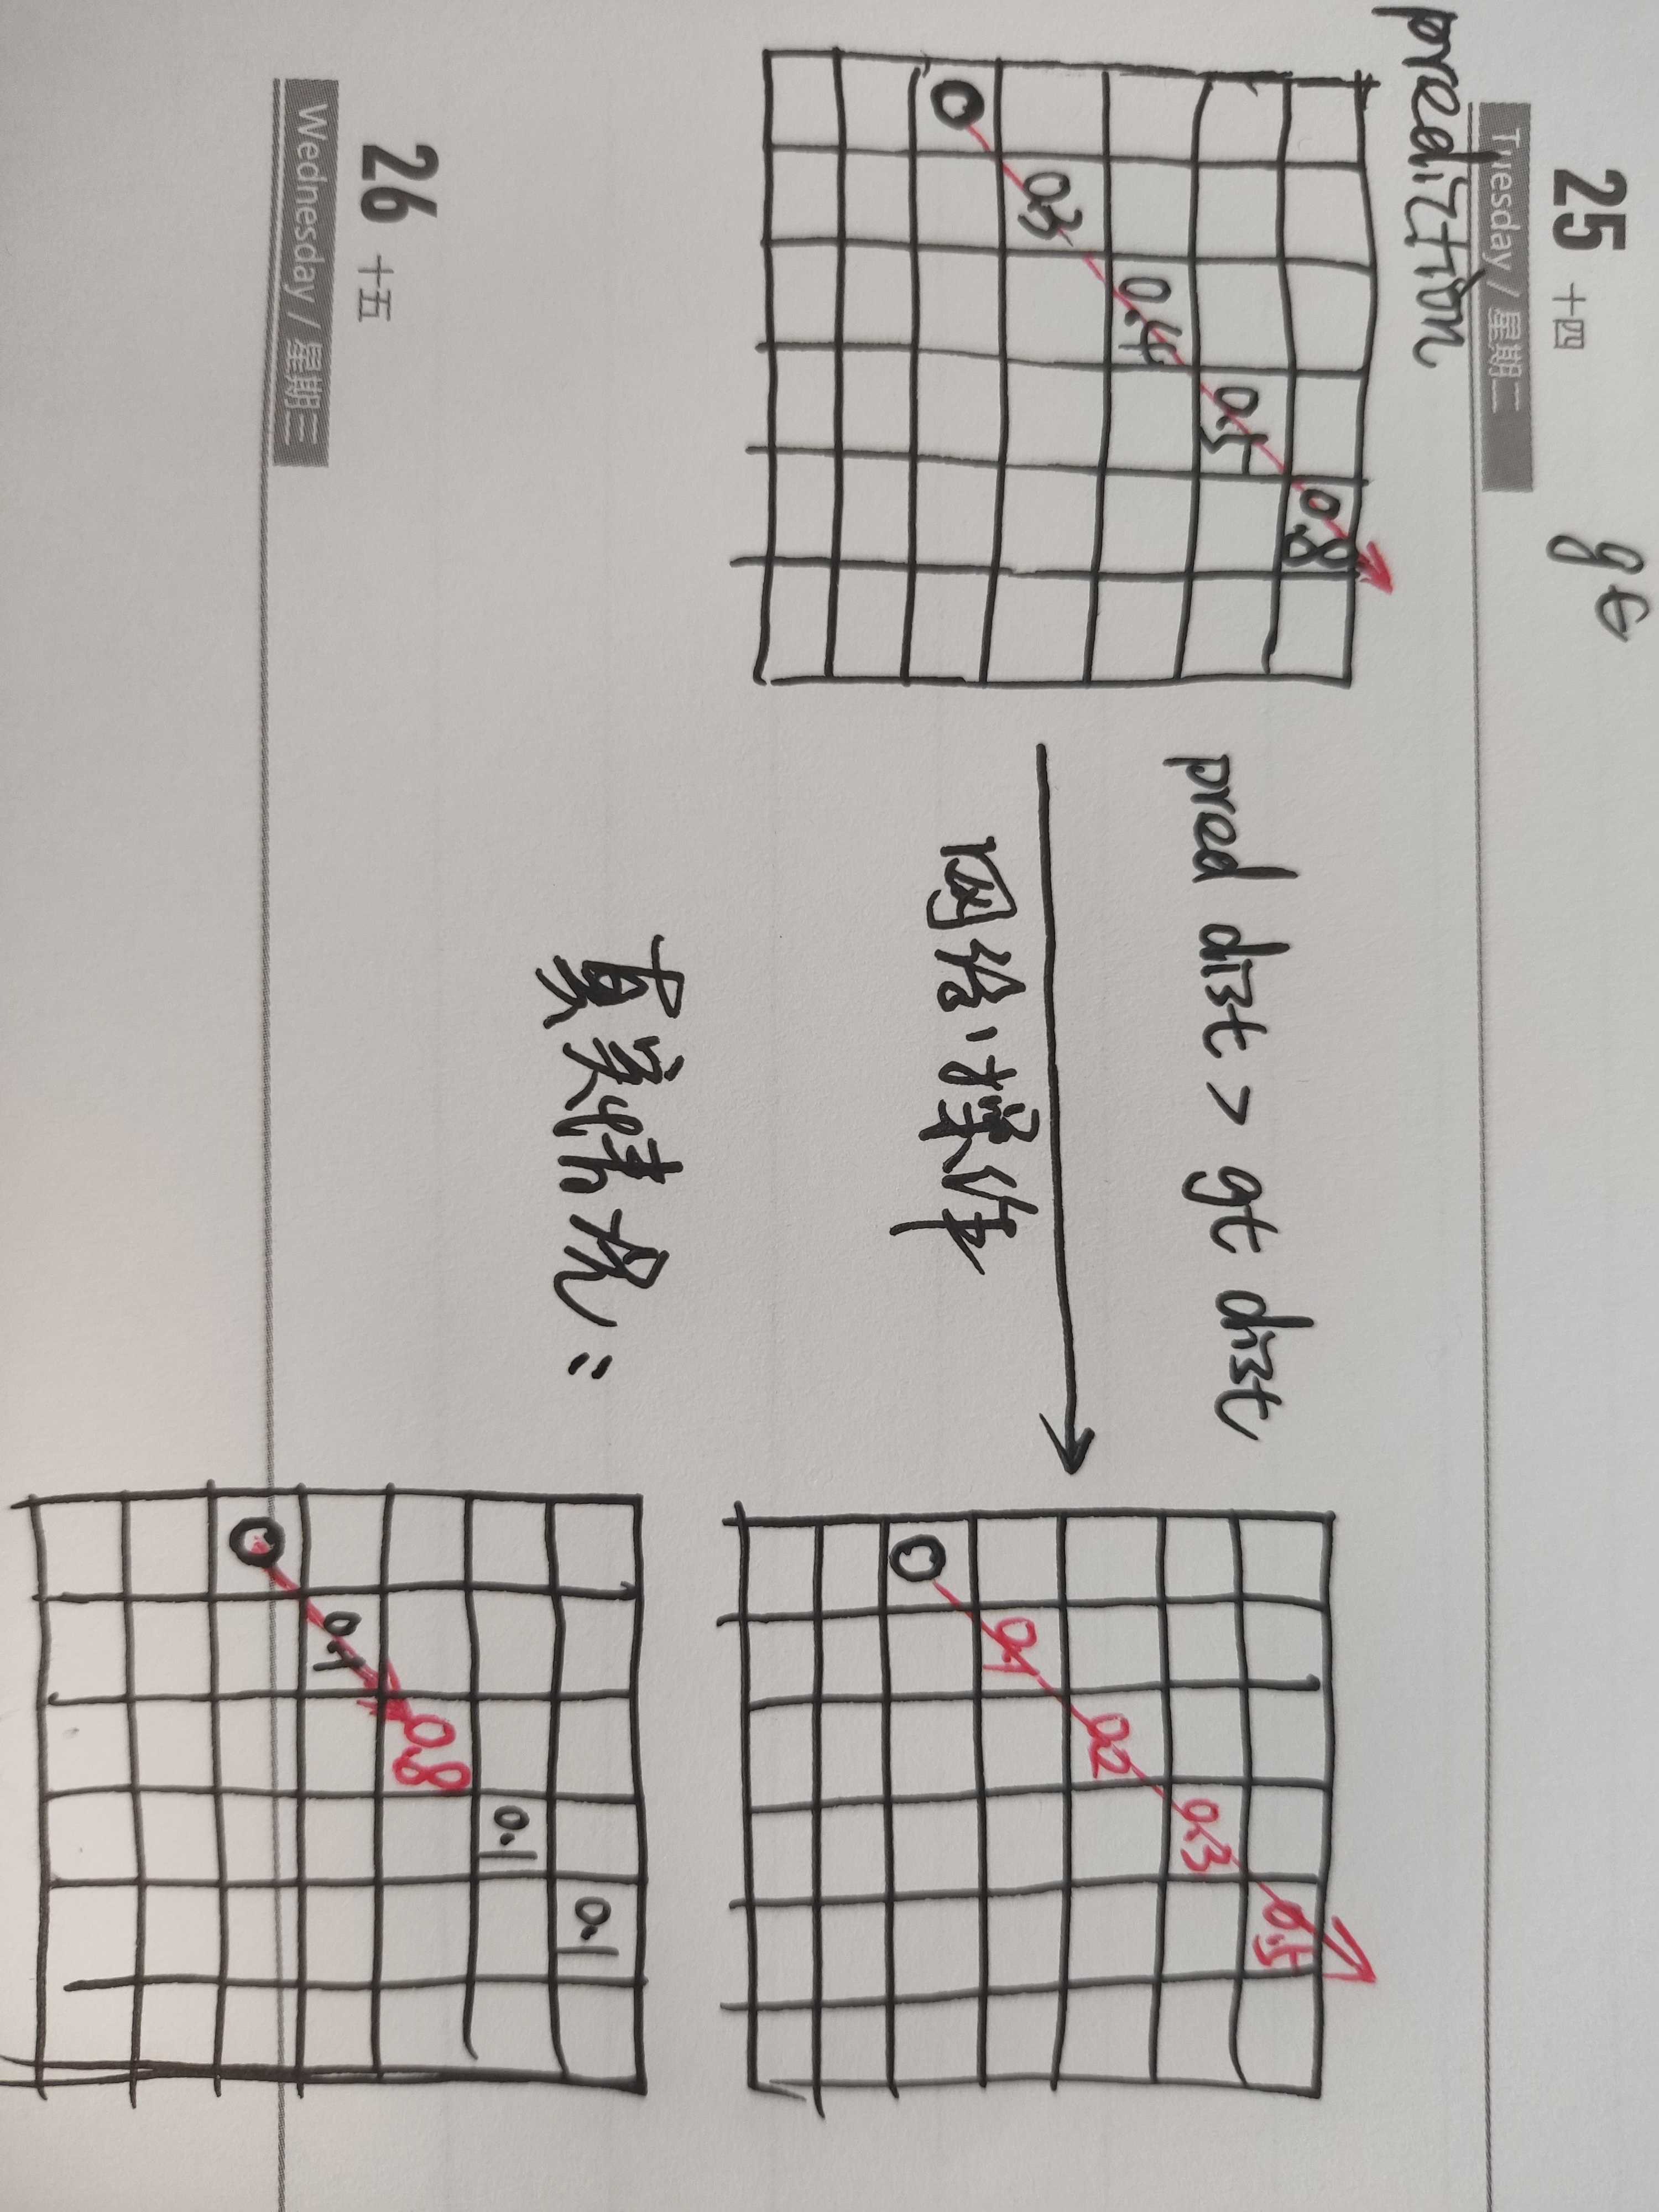 25 十四 gt
Tuesday / 星期二
prediztion
0.8
0.5
0.4
0.3
0
pred dist > gt dist
网络操作
0.5
0.3
0.2
0.1
0
真实情况:
0.1
0.1
0.8
0.1
0
26 十五
Wednesday / 星期三